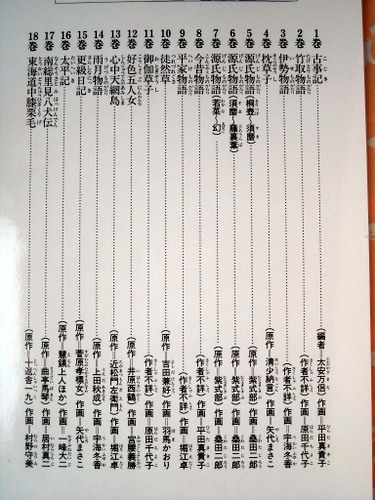 1巻 古事記 (編者=太安万侶) 作画=平田真貴子
2巻 竹取物語 (作者不詳) 作画=原田千代子
3巻 伊勢物語 (作者不詳) 作画=宇海冬香
4巻 枕草子 (原作=清少納言) 作画=矢代まさこ
5巻 源氏物語(桐壺〜須磨) (原作=紫式部) 作画=桑田二郎
6巻 源氏物語(須磨〜藤裏葉) (原作=紫式部) 作画=桑田二郎
7巻 源氏物語(若菜〜幻) (原作=紫式部) 作画=桑田二郎
8巻 今昔物語 (作者不詳) 作画=平田真貴子
9巻 平家物語 (作者不詳) 作画=堀江卓
10巻 徒然草 (原作=吉田兼好) 作画=羽馬かおり
11巻 御伽草子 (作者不詳) 作画=原田千代子
12巻 好色五人女 (原作=井原西鶴) 作画=宮腰義勝
13巻 心中天網島 (原作=近松門左衛門) 作画=堀江卓
14巻 雨月物語 (原作=上田秋成) 作画=宇海冬香
15巻 更級日記 (原作=菅原孝標女) 作画=矢代まさこ
16巻 太平記 (原作=慧鎮上人ほか) 作画=一峰大二
17巻 南総里見八犬伝 (原作=曲亭馬琴) 作画=居村真二
18巻 東海道中膝栗毛 (原作=十返舎一九) 作画=村野守美